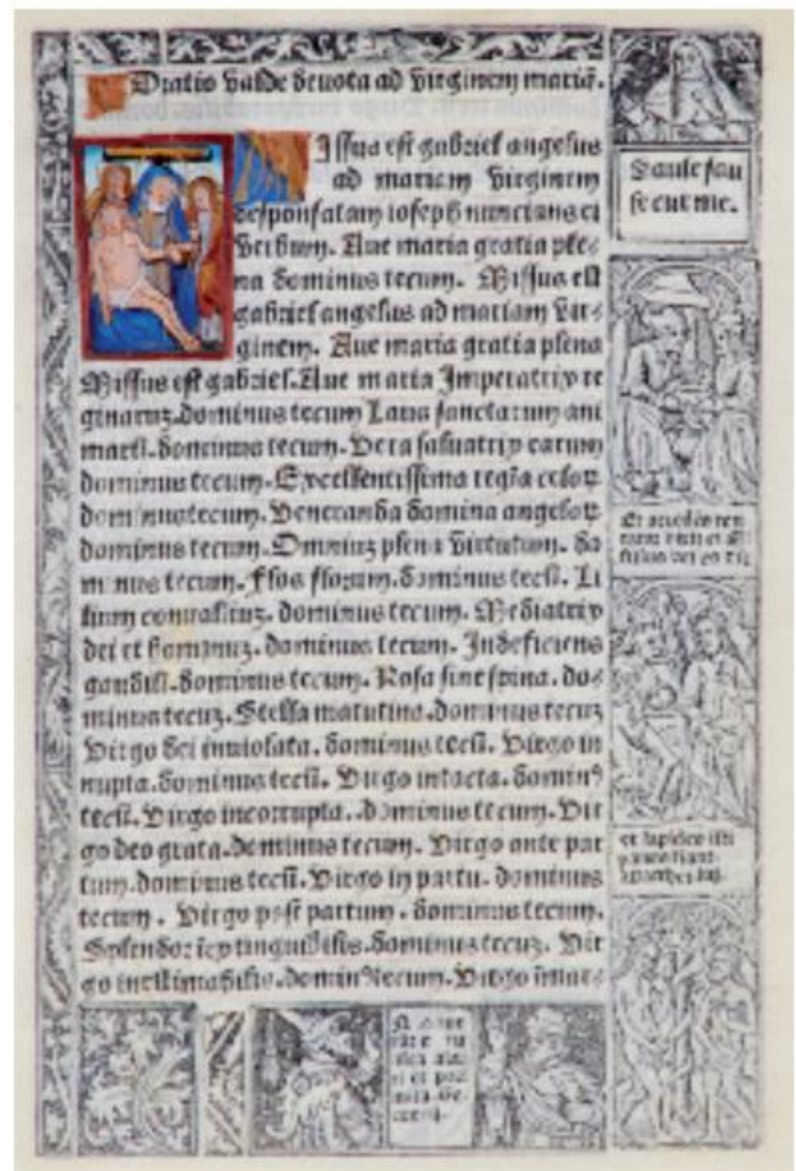 Oratio valde devota ad virginem mariā.
Issus est gabriel angelus
ad mariam virginem
desponsatam ioseph nuncians ei
verbum. Ave maria gratia ple-
na dominus tecum. Missus est
gabriel angelus ad mariam vir-
ginem. Ave maria gratia plena
Missus est gabriel. Ave maria Imperatrix re
ginaruz. dominus tecum Laus sanctarum ani
marū. dominus tecum. Vera salvatrix earum
dominus tecum. Excellentissima regīa celoꝝ
dominus tecum. Veneranda domina angeloꝝ
dominus tecum. Omniuz plena virtutum. do
minus tecum. Flos florum. dominus tecū. Li
lium convalliuz. dominus tecum. Mediatrix
dei et hominuz. dominus tecum. Indeficiens
gaudiū. dominus tecum. Rosa sine spina. do-
minus tecuz. Stella matutina. dominus tecuz
Virgo dei inviolata. dominus tecū. Virgo in
nupta. dominus tecū. Virgo intacta. dominꝰ
tecū. Virgo incorrupta.. dominus tecum. Vir
go deo grata. dominus tecum. Virgo ante par
tum. dominus tecū. Virgo in partu. dominus
tecum. Virgo post partum. dominus tecum.
Splendor inextinguibilis. dominus tecuz. Vir
go inestimabilis. dominꝰ tecum. Virgo
Saule sau
le cur me.